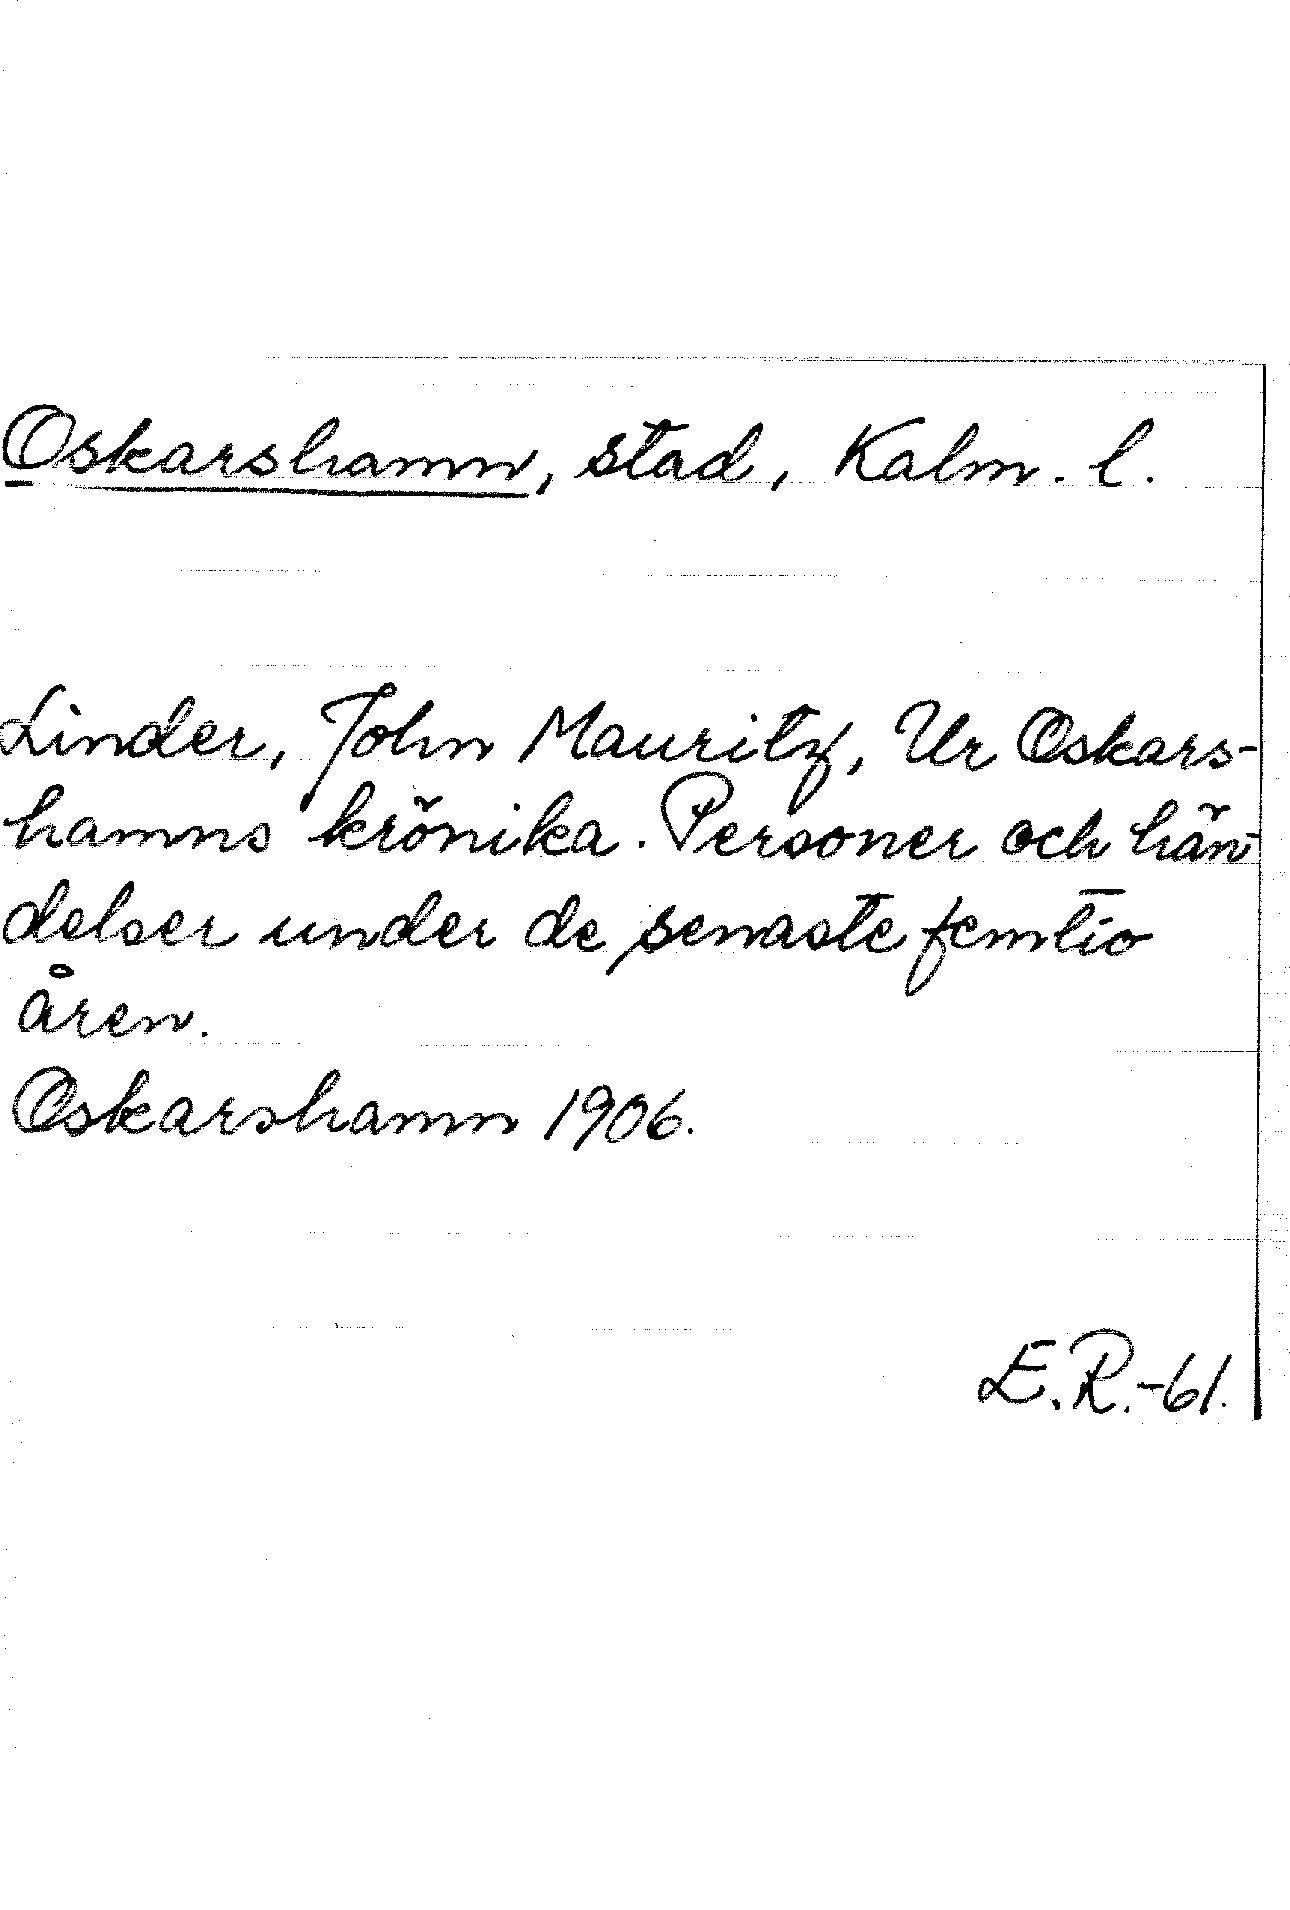 Oskarshamn, stad, Kalm. l.
Linder, John Mauritz, Ur Oskars-
hamns krönika. Personer och hän-
delser under de senaste femtio
åren.
Oskarshamn 1906.
E.R.-61.